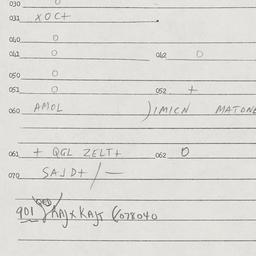 030 0
031 XOC+
040 0
041 0 042 0
050 0
051 0 052 +
060 AMOL )IMICN MATONE
061 + QGL ZELT+ 062 0
070 SAJD+/—
901 078040